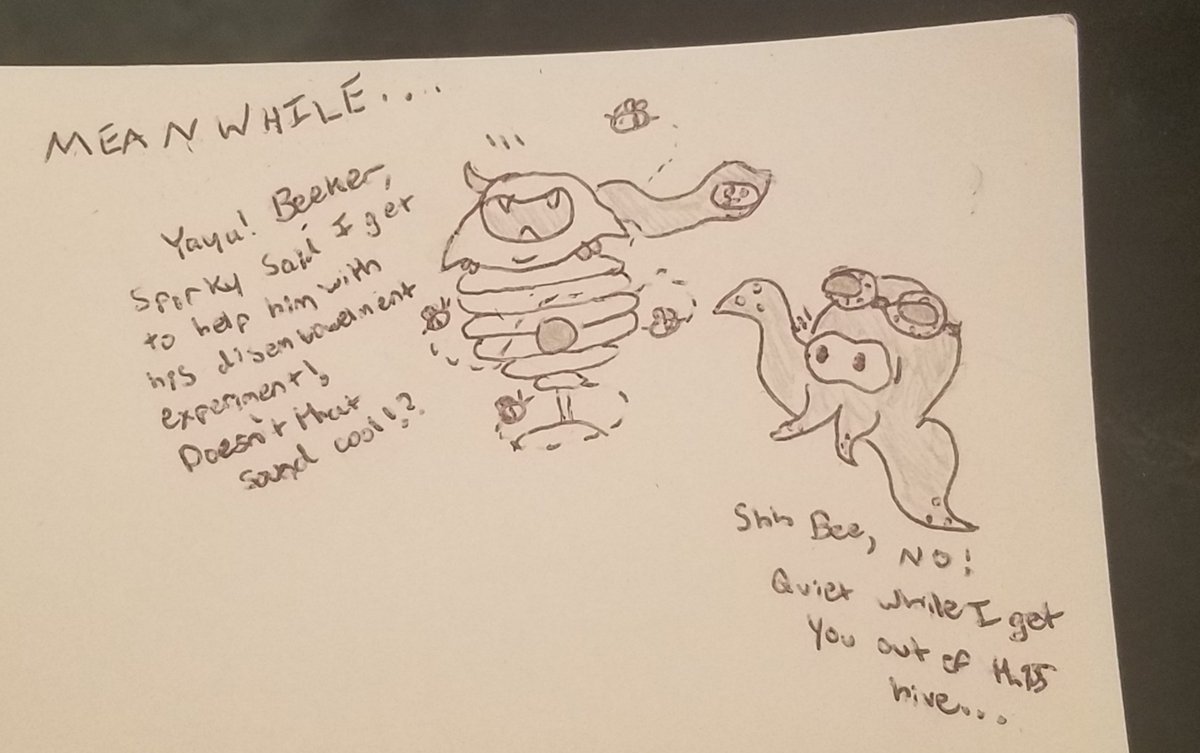 MEANWHILE...
Yaya! Beeker,
Sporky Said I get
to help him with
his disembowelment
experiment!
Doesn't that
Sound cool!?
Shh Bee, NO!
Quiet while I get
you out of this
hive...